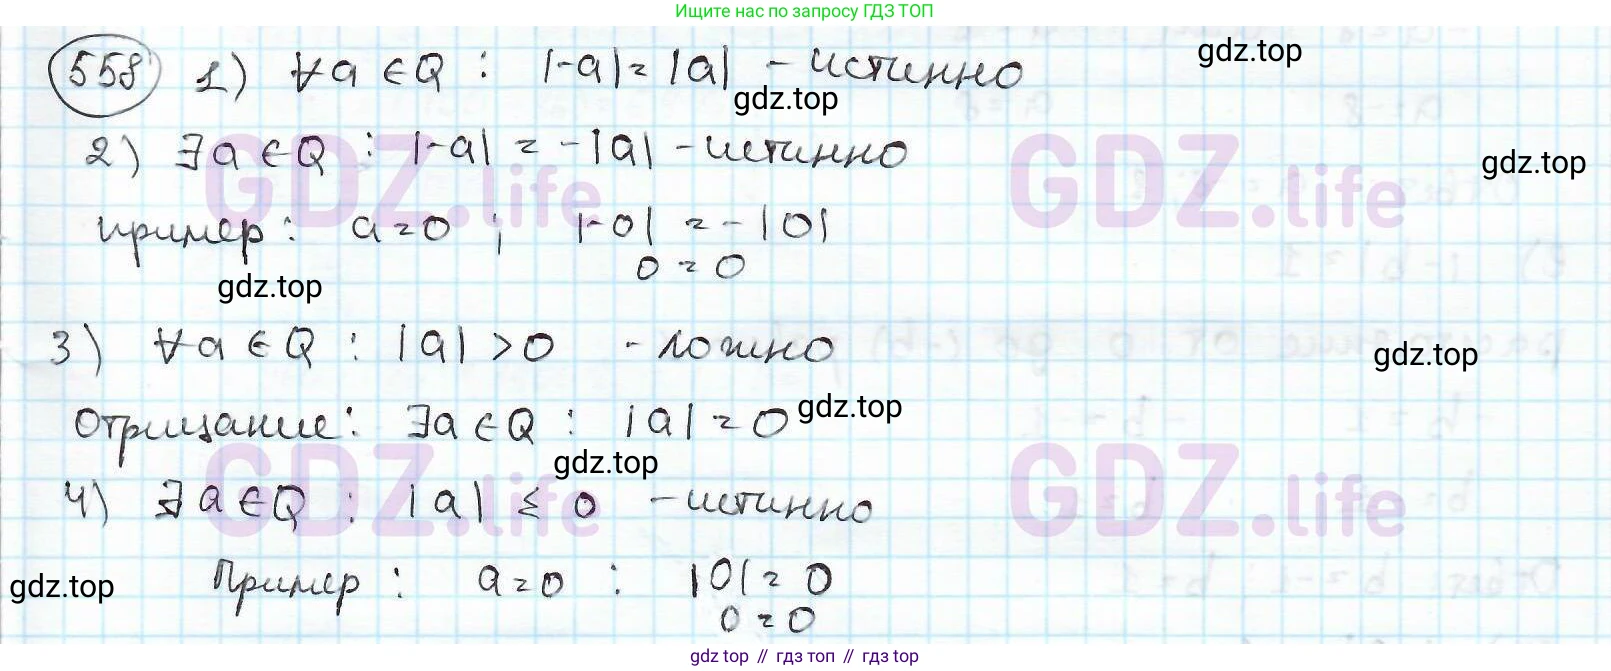 Ищите нас по запросу ГДЗ ТОП
558 1) ∀a ∈ Q : |-a| = |a| - истинно
gdz.top
gdz.top
2) ∃a ∈ Q : |-a| = -|a| - истинно
gdz.top
GDZ.life GDZ.life
пример: a=0 ; |-0| = -|0|
0 = 0
gdz.top
3) ∀a ∈ Q : |a| > 0 - ложно
gdz.top
Отрицание: ∃a ∈ Q : |a| = 0
gdz.top
GDZ.life GDZ.life
gdz.top
4) ∃a ∈ Q : |a| ≤ 0 - истинно
Пример : a=0 : |0| = 0
gdz.top
0 = 0
gdz.top // гдз топ // гдз top